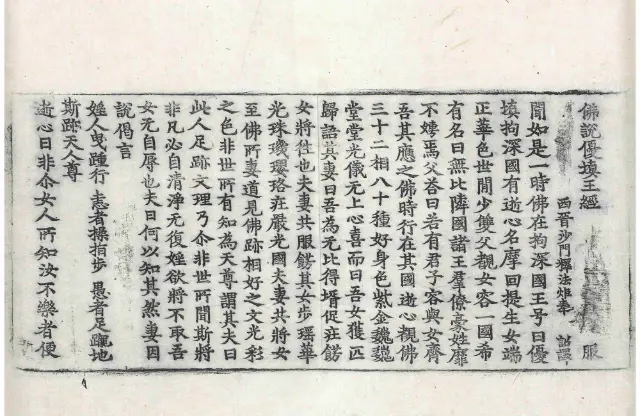 佛說優填王經 服
西晉沙門釋法炬奉 詔譯
聞如是一時佛在拘深國王号曰優
填拘深國有逝心名摩回提生女端
正華色世間少雙父覩女容一國希
有名曰無比隣國諸王羣僚豪姓靡
不娉焉父荅曰若有君子容與女齊
吾其應之佛時行在其國逝心覩佛
三十二相八十種好身色紫金巍巍
堂堂光儀无上心喜而曰吾女獲匹
歸語其妻曰吾為无比得壻促庄餝
女將往也夫妻共服餝其女步瑶華
光珠璣瓔珞莊嚴光國夫妻共將女
至佛所妻道見佛跡相好之文光彩
之色非世所有知為天尊謂其夫曰
此人足跡文理乃尒非世所聞斯將
非凡必自清淨无復婬欲將不取吾
女无自辱也夫曰何以知其然妻因
說偈言
婬人曳踵行 恚者操指步 愚者足躐地
斯跡天人尊
逝心曰非尒女人所知汝不樂者便